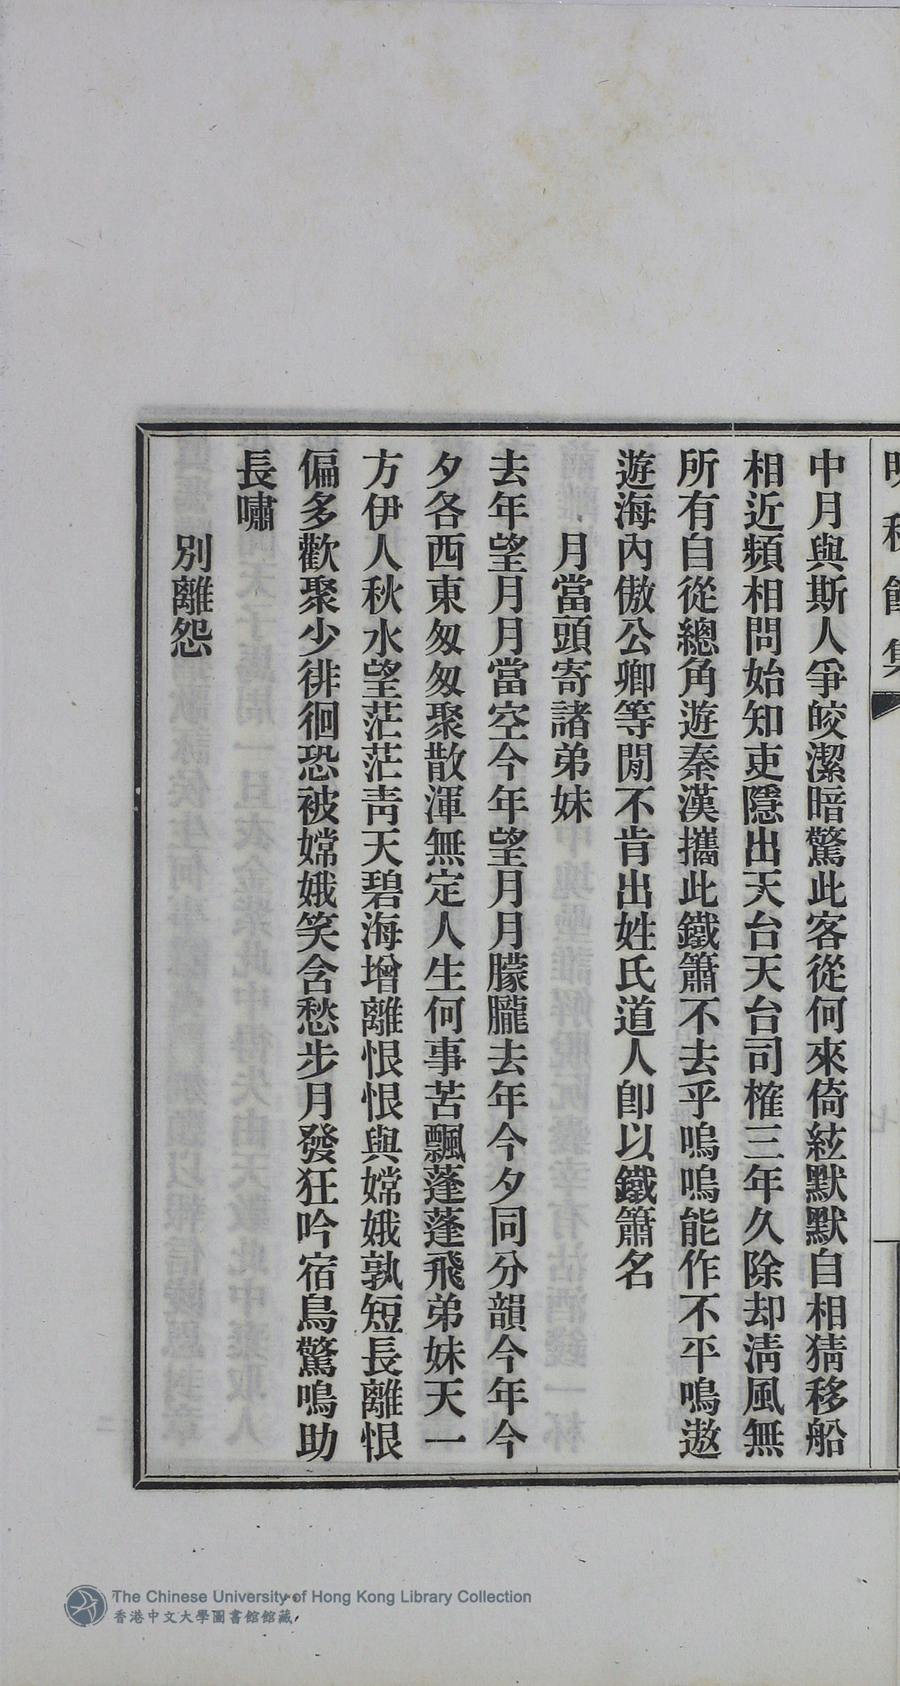 中月與斯人爭皎潔暗驚此客從何來倚絃默默自相猜移船
相近頻相問始知吏隱出天台天台司榷三年久除却淸風無
所有自從總角遊秦漢攜此鐵簫不去乎嗚嗚能作不平鳴遨
遊海內傲公卿等閒不肯出姓氏道人卽以鐵簫名
月當頭寄諸弟妹
去年望月月當空今年望月月朦朧去年今夕同分韻今年今
夕各西東匆匆聚散渾無定人生何事苦飄蓬蓬飛弟妹天一
方伊人秋水望茫茫靑天碧海增離恨恨與嫦娥孰短長離恨
偏多歡聚少徘徊恐被嫦娥笑含愁步月發狂吟宿鳥驚鳴助
長嘯
別離怨
The Chinese University of Hong Kong Library Collection
香港中文大學圖書館館藏